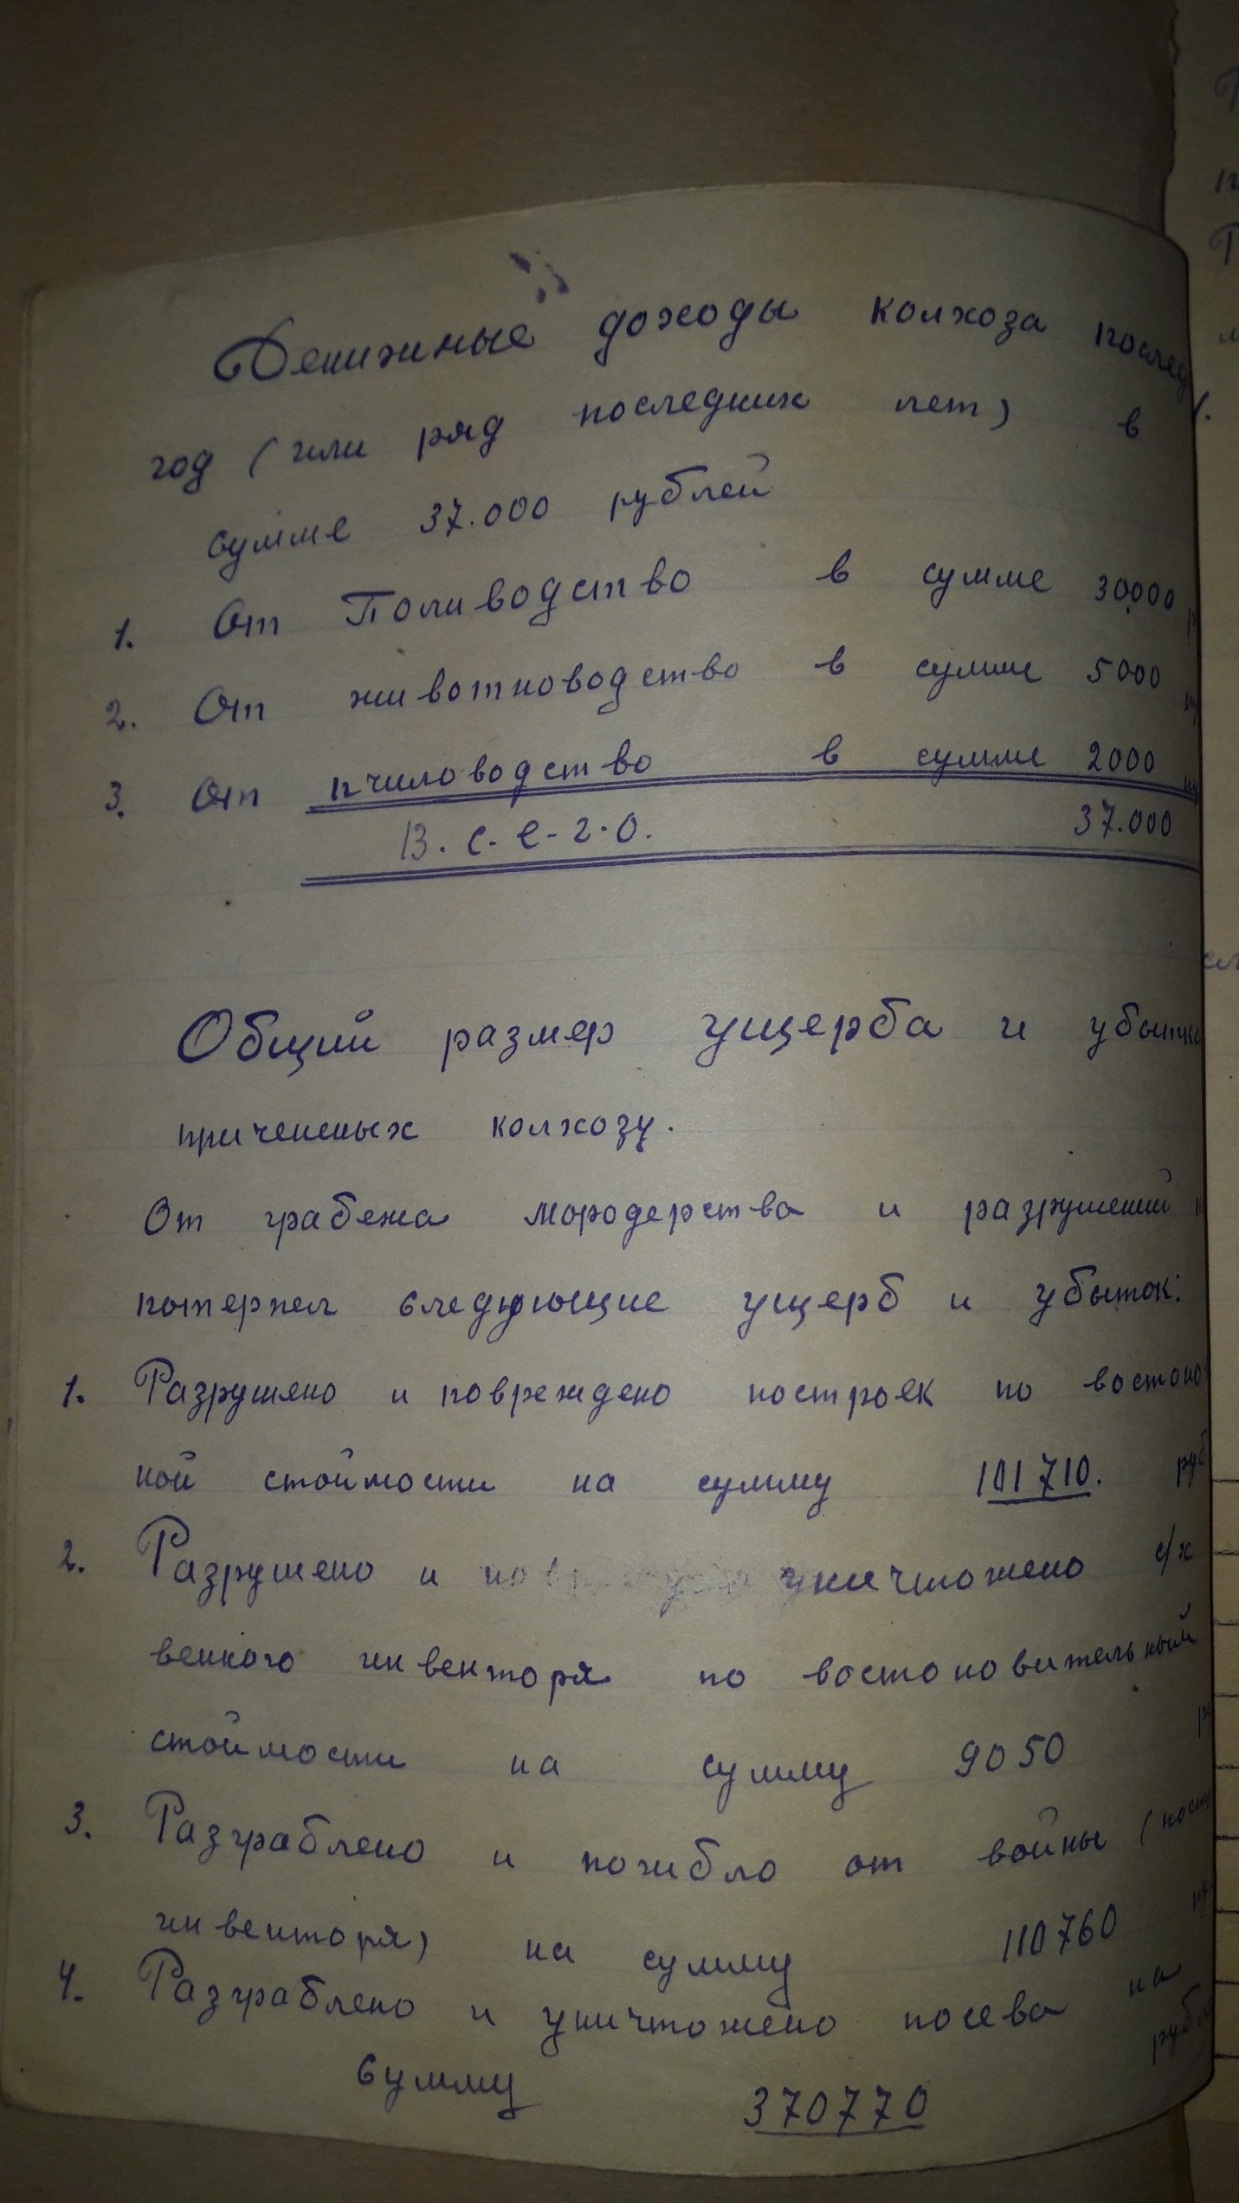 Денижные доходы колхоза послед
год (или ряд последних лет) в
сумме 37.000 рублей
1. От Поливодство в сумме 30000 р
2. От животноводство в сумме 5000
3. От пчиловодство в сумме 2000
В. с. е. г. о. 37.000
Общий размер ущерба и убытка
приченených колхозу.
От грабежа мородерства и разрушений
потерпел следующие ущерб и убыток:
1. Разрушено и повреждено построек по востоно
ной стоймости на сумму 101710. руб
2. Разрушено и уничтожено с/х
венного инвенторя по востоновительный
стоймости на сумму 9050
3. Разграблено и погибло от войны (пост
инвенторя) на сумму 110760
4. Разграблено и уничтожено посева на
сумму 370770 руб